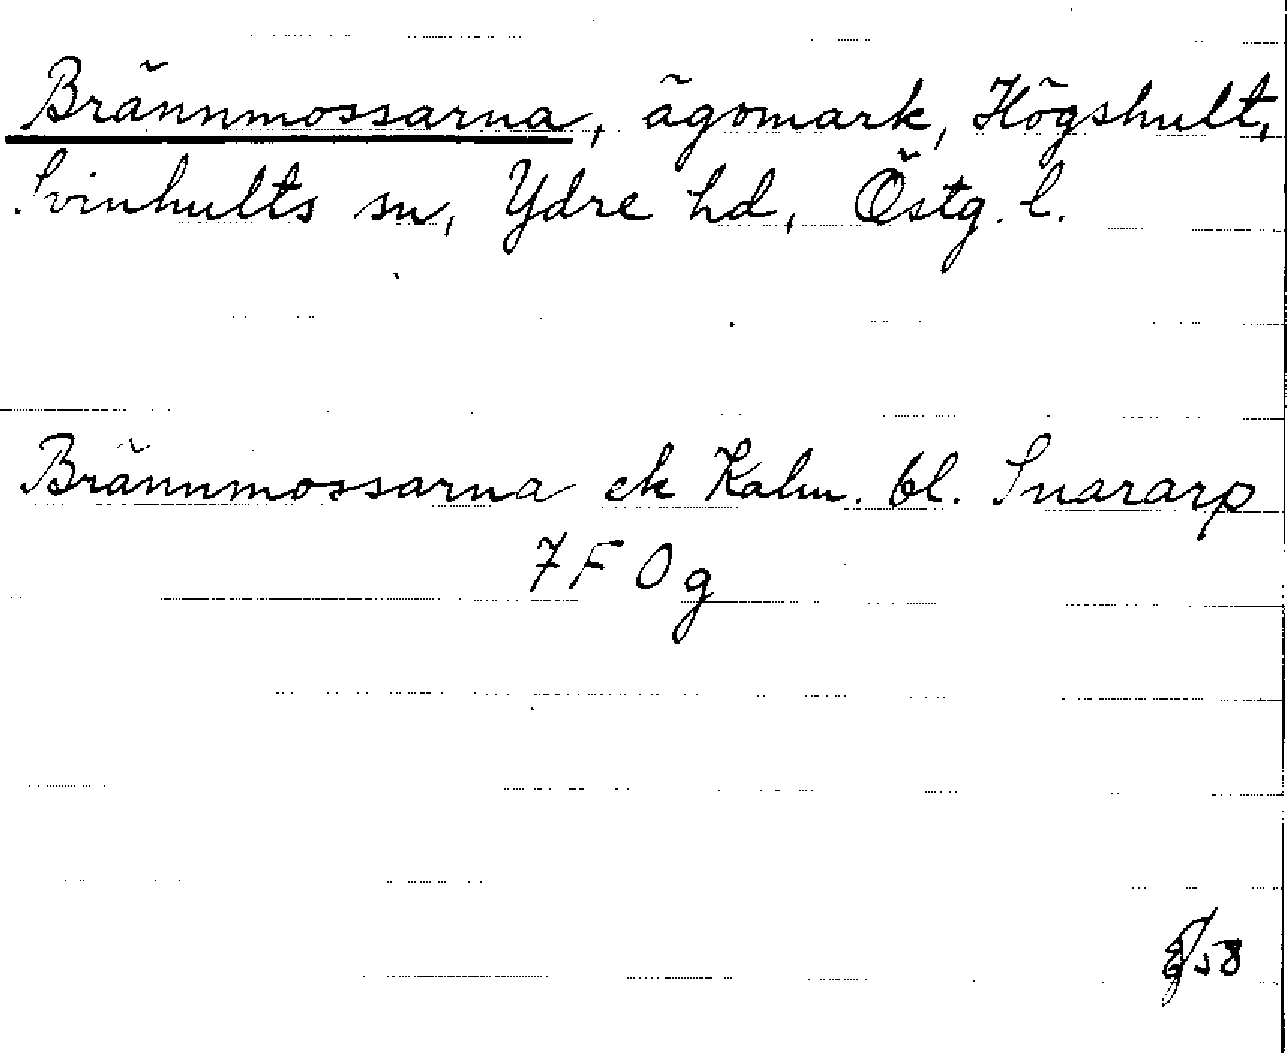 Brännmossarna, ägomark, Högshult,
Svinhults sn, Ydre hd, Östg. l.
Brännmossarna ek Kalm. bl. Snararp
7 F 0 g
/58